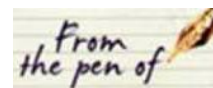 From
the pen of